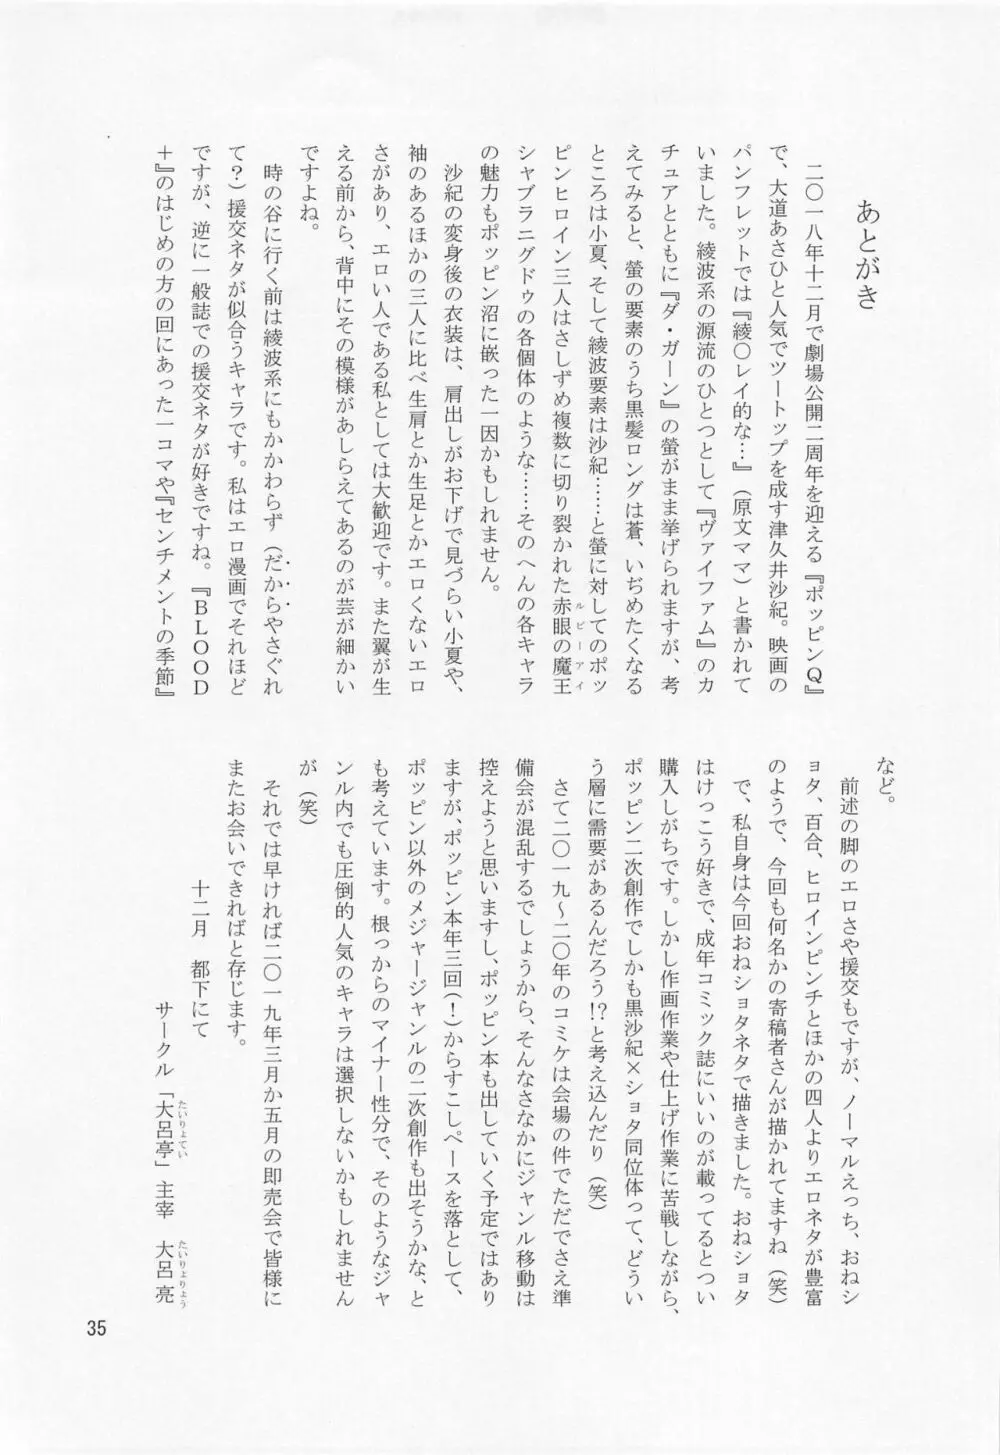 あとがき
二〇一八年十二月で劇場公開二周年を迎える『ポッピンQ』
で、大道あさひと人気でツートップを成す津久井沙紀。映画の
パンフレットでは『綾〇レイ的な…』（原文ママ）と書かれて
いました。綾波系の源流のひとつとして『ヴァイファム』のカ
チュアとともに『ダ・ガーン』の螢がまま挙げられますが、考
えてみると、螢の要素のうち黒髪ロングは蒼、いぢめたくなる
ところは小夏、そして綾波要素は沙紀……と螢に対してのポッ
ピンヒロイン三人はさしずめ複数に切り裂かれた赤眼の魔王
ルビーアイ
シャブラニグドゥの各個体のような……そのへんの各キャラ
の魅力もポッピン沼に嵌った一因かもしれません。
沙紀の変身後の衣装は、肩出しがお下げで見づらい小夏や、
袖のあるほかの三人に比べ生肩とか生足とかエロくないエロ
さがあり、エロい人である私としては大歓迎です。また翼が生
える前から、背中にその模様があしらえてあるのが芸が細かい
ですよね。
時の谷に行く前は綾波系にもかかわらず（だからやさぐれ
て？）援交ネタが似合うキャラです。私はエロ漫画でそれほど
ですが、逆に一般誌での援交ネタが好きですね。『BLOOD
＋』のはじめの方の回にあった一コマや『センチメントの季節』
など。
前述の脚のエロさや援交もですが、ノーマルえっち、おねシ
ョタ、百合、ヒロインピンチとほかの四人よりエロネタが豊富
のようで、今回も何名かの寄稿者さんが描かれてますね（笑）
で、私自身は今回おねショタネタで描きました。おねショタ
はけっこう好きで、成年コミック誌にいいのが載ってるとつい
購入しがちです。しかし作画作業や仕上げ作業に苦戦しながら、
ポッピン二次創作でしかも黒沙紀×ショタ同位体って、どうい
う層に需要があるんだろう!?と考え込んだり（笑）
さて二〇一九～二〇年のコミケは会場の件でただでさえ準
備会が混乱するでしょうから、そんなさなかにジャンル移動は
控えようと思いますし、ポッピン本も出していく予定ではあり
ますが、ポッピン本年三回（！）からすこしペースを落として、
ポッピン以外のメジャージャンルの二次創作も出そうかな、と
も考えています。根っからのマイナー性分で、そのようなジャ
ンル内でも圧倒的人気のキャラは選択しないかもしれません
が（笑）
それでは早ければ二〇一九年三月か五月の即売会で皆様に
またお会いできればと存じます。
十二月　都下にて
サークル「大呂亭」主宰　大呂　亮
たいりょてい　たいりょりょう
35